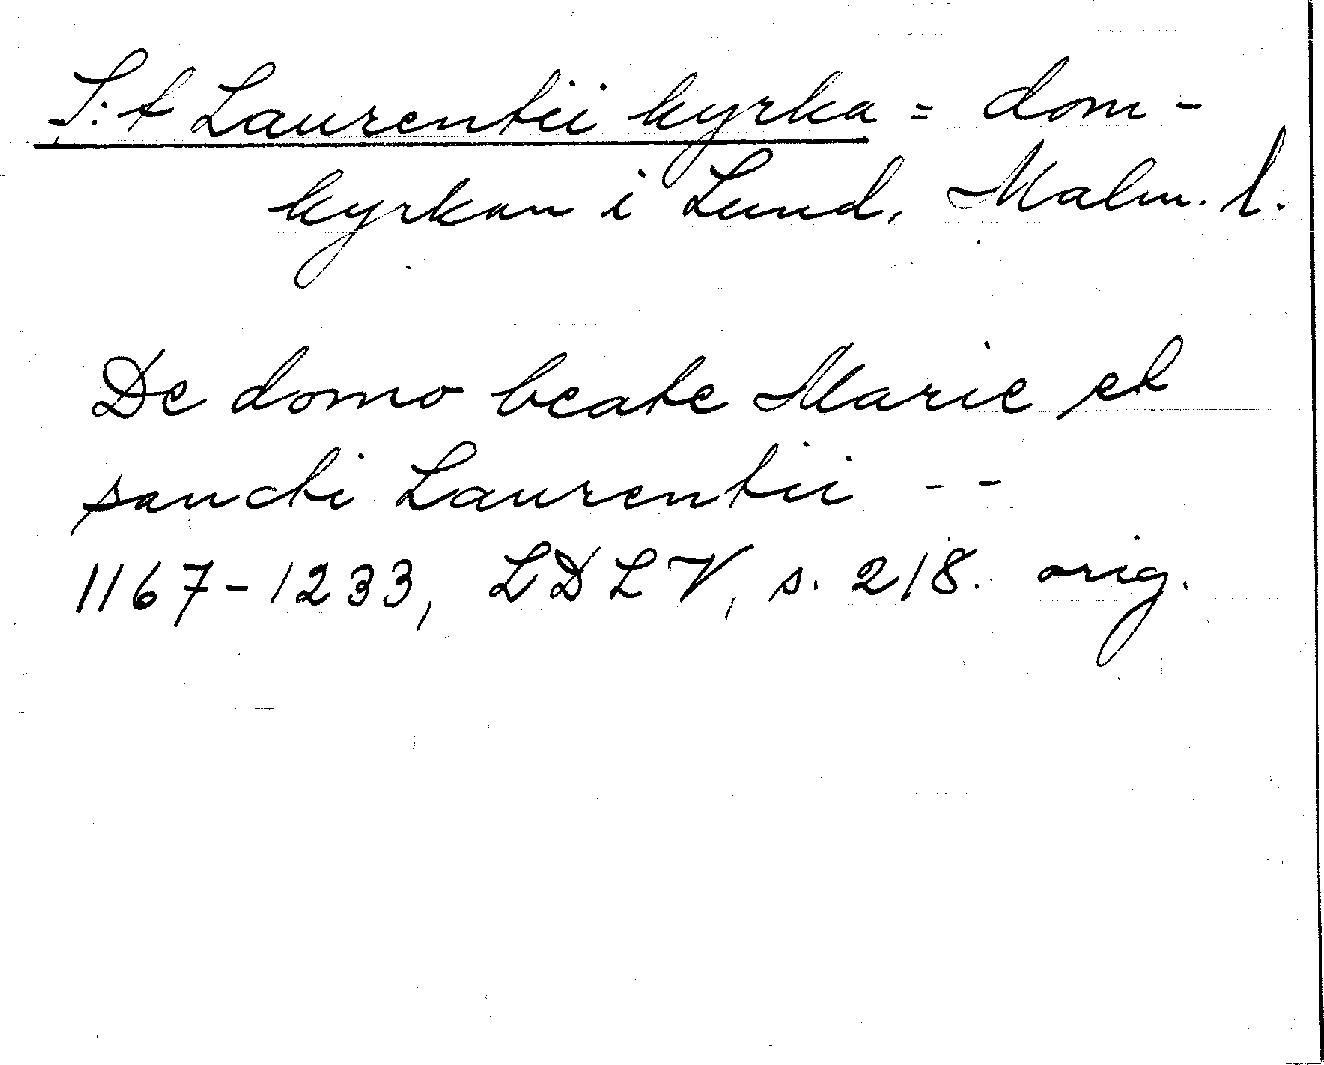 S:t Laurentii kyrka = dom-
kyrkan i Lund, Malm. l.
De domo beate Marie et
sancti Laurentii - -
1167-1233, LDLV, s. 218. orig.